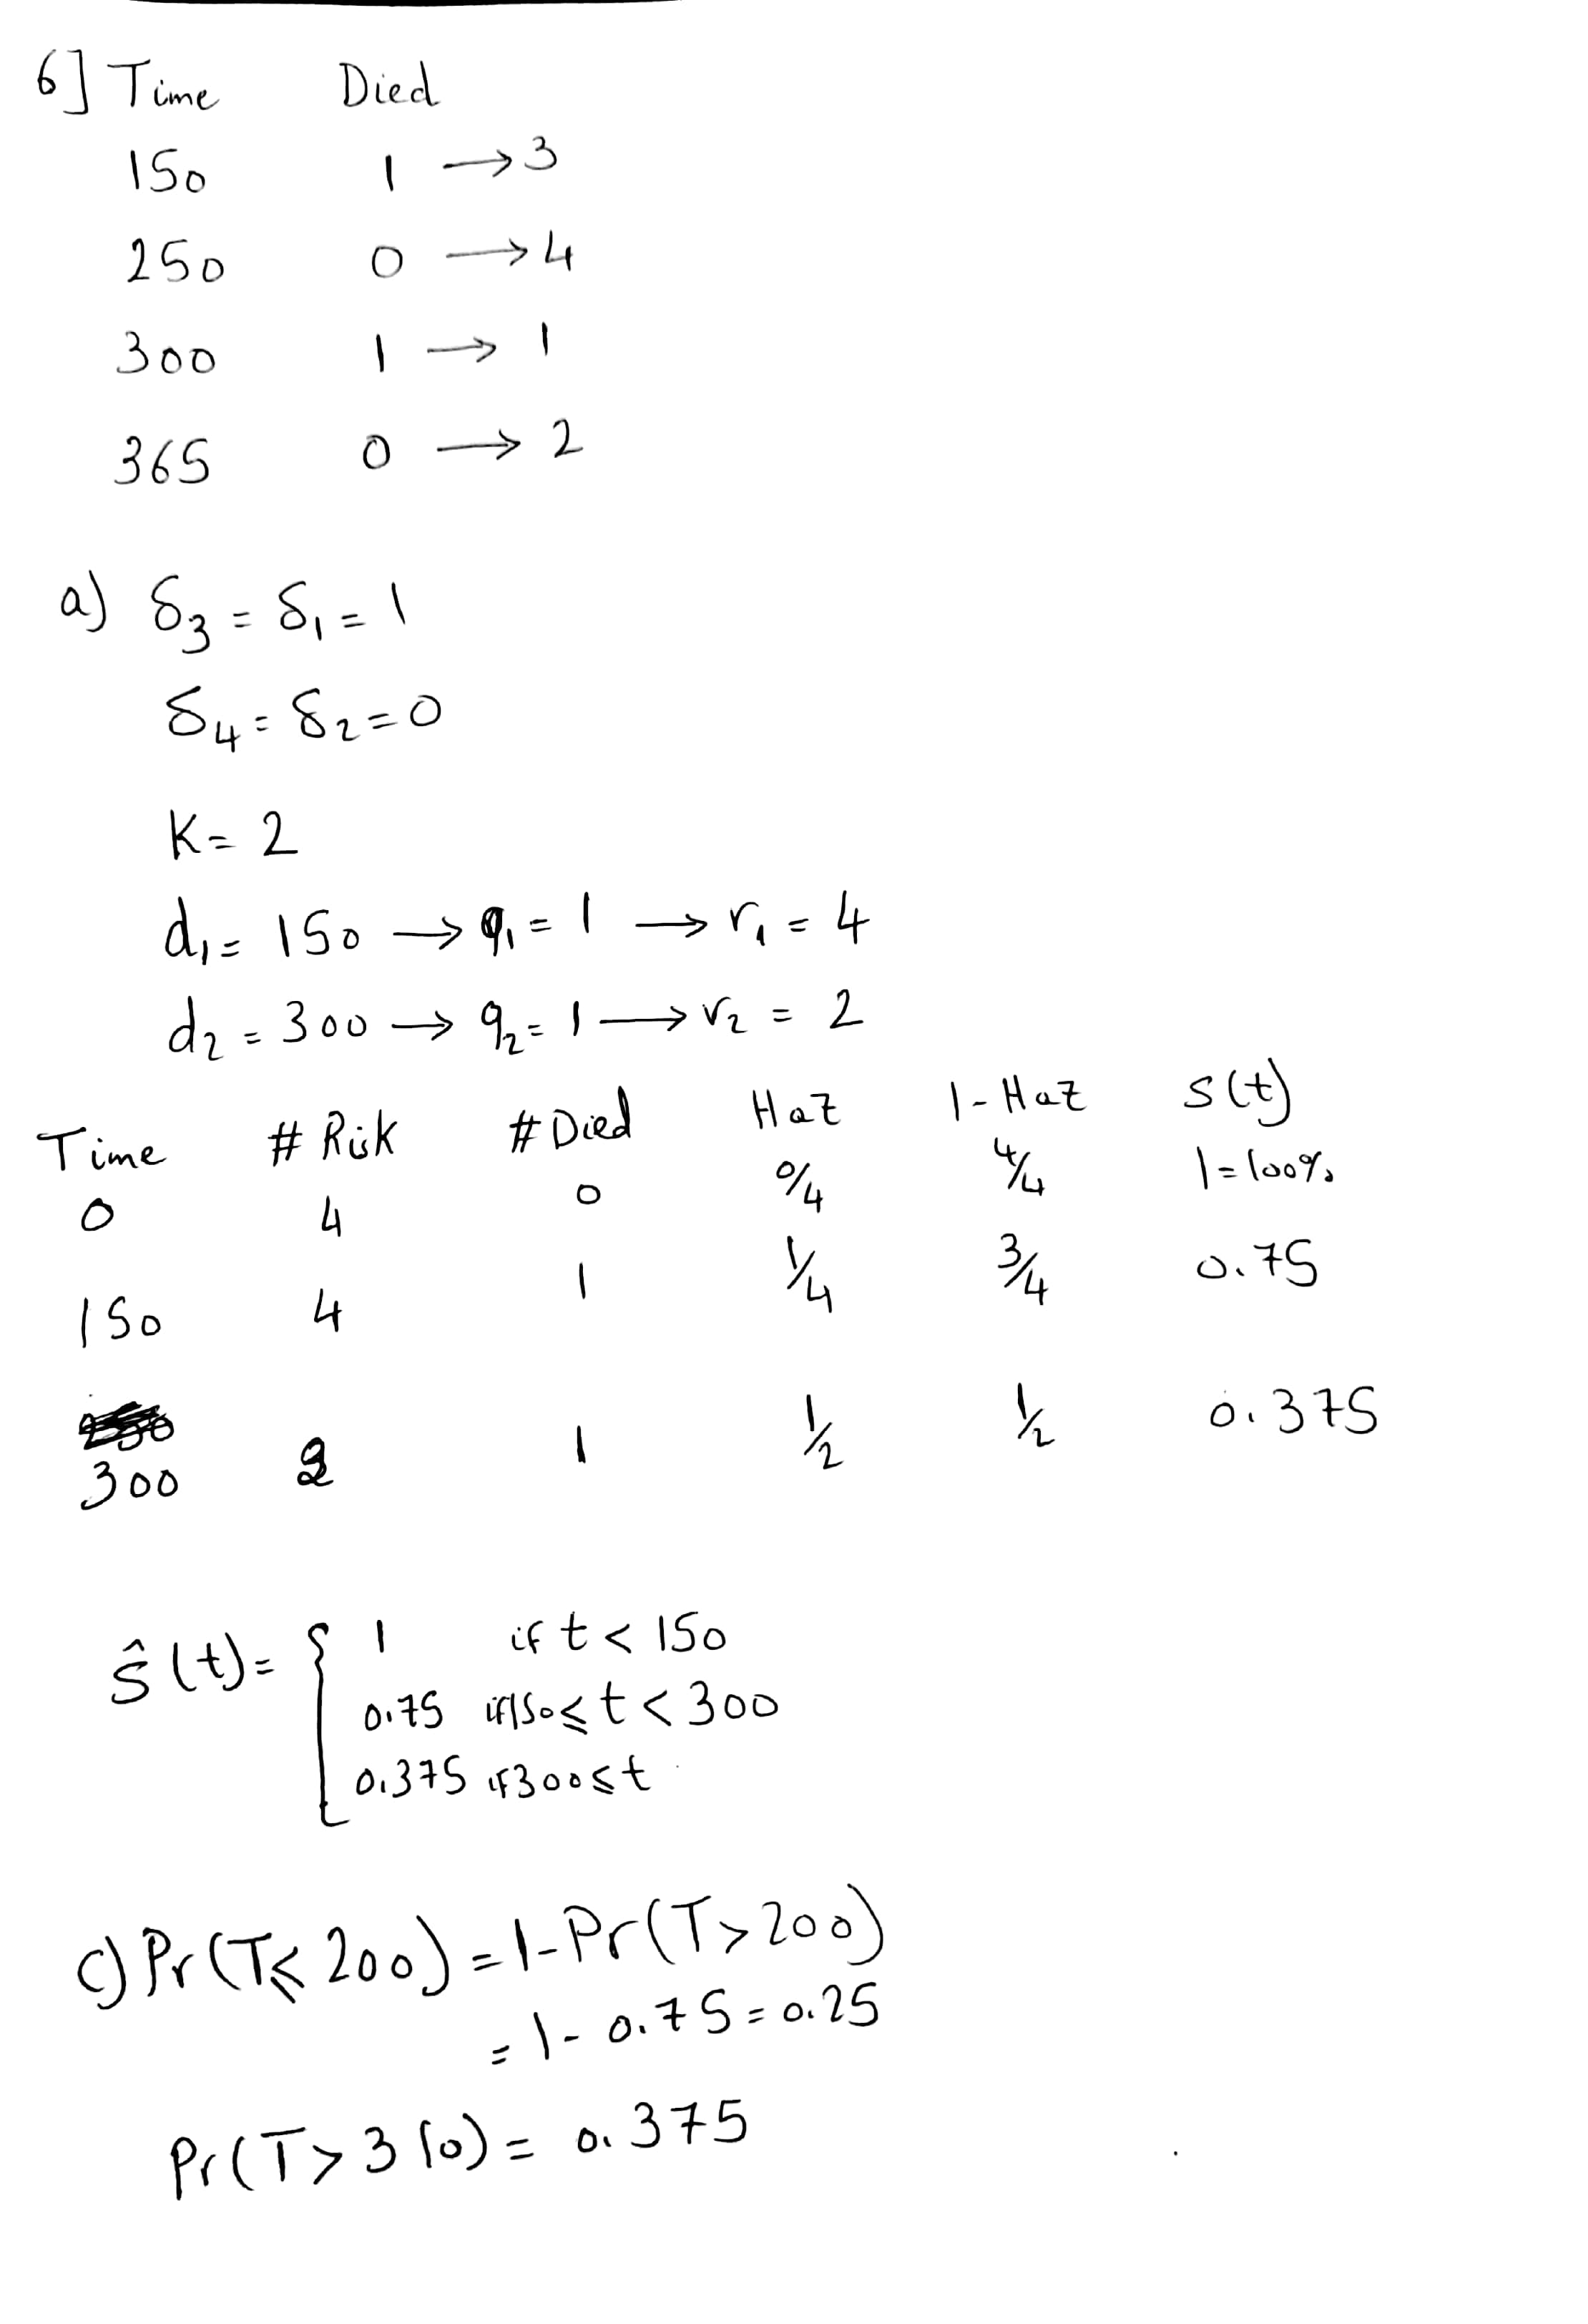 6] Time Died
150 1 → 3
250 0 → 4
300 1 → 1
365 0 → 2
a) δ₃ = δ₁ = 1
δ₄ = δ₂ = 0
K = 2
d₁ = 150 → q₁ = 1 → r₁ = 4
d₂ = 300 → q₂ = 1 → r₂ = 2
Time # Risk # Died Haz 1 - Haz S(t)
0 4 0 0/4 4/4 1 = 100%
150 4 1 1/4 3/4 0.75
300 2 1 1/2 1/2 0.375
ŝ(t) = { 1 if t < 150
0.75 if 150 ≤ t < 300
0.375 if 300 ≤ t
c) Pr(T ≤ 200) = 1 - Pr(T > 200)
= 1 - 0.75 = 0.25
Pr(T > 310) = 0.375